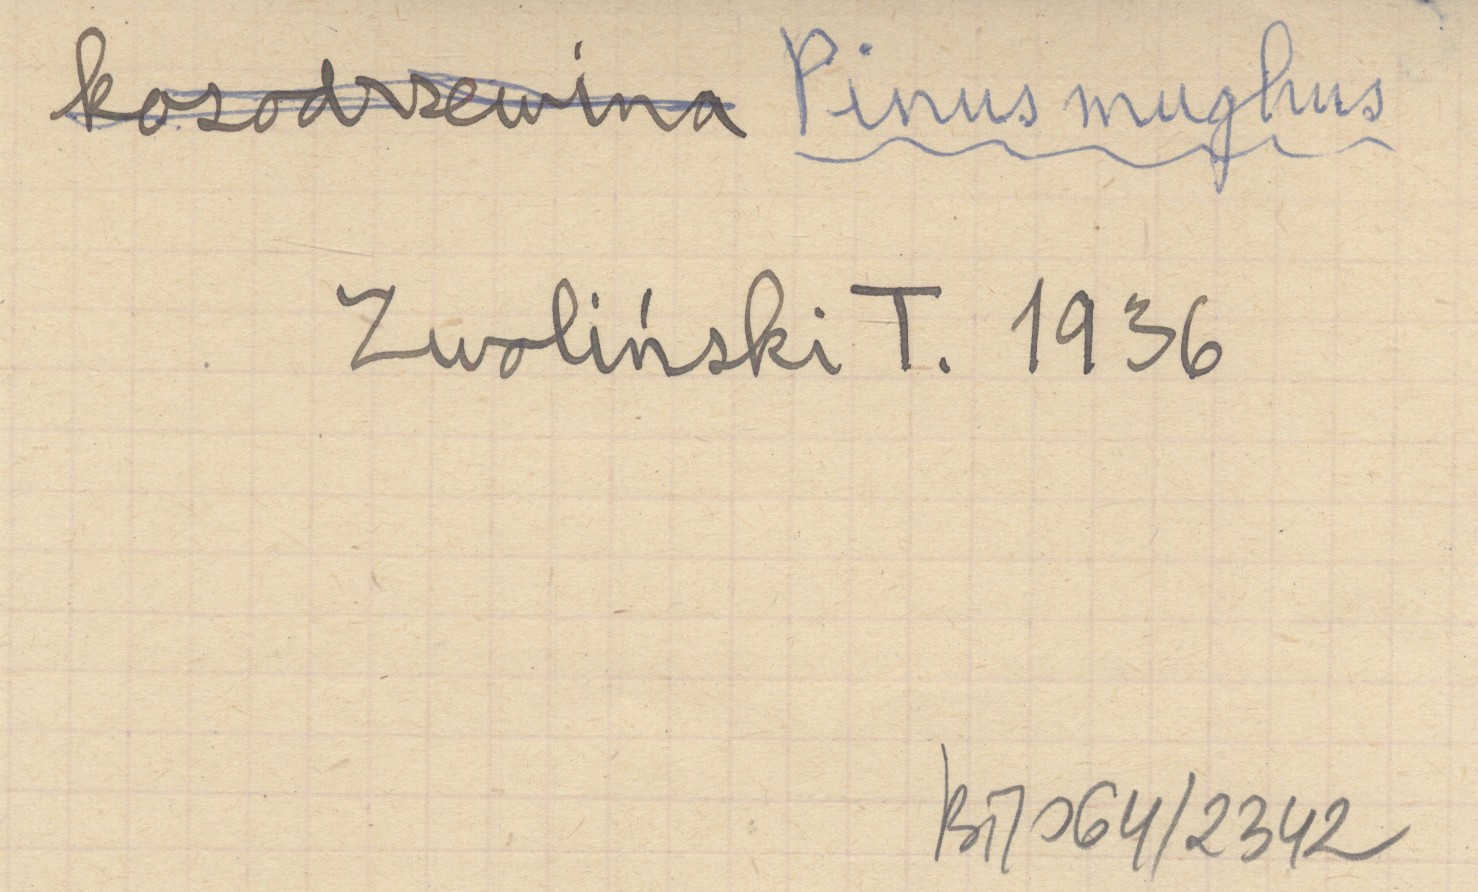 kosodrzewina Pinus mughus
Zwoliński T. 1936
/2342